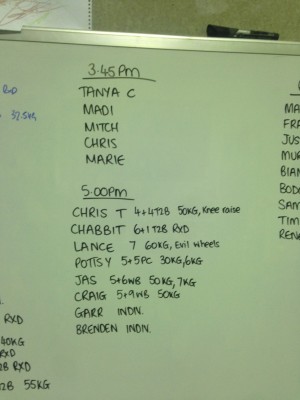 RxD
32.5KG
3.45pm
TANYA C
MADI
MITCH
CHRIS
MARIE
5.00pm
CHRIS T 4+4T2B 50KG, Knee raise
CHABBIT 6+1 T2B RXD
LANCE 7 60KG, Evil wheels
POTTSY 5+5PC 30KG, 6KG
JAS 5+6WB 50KG, 7KG
CRAIG 5+9WB 50KG
GARR INDIV.
BRENDEN INDIV.
RXD
40KG
RXD
2B RXD
2B 55KG
MA
FRA
JUS
MUR
BIAN
BOD
SAM
TIM
REN